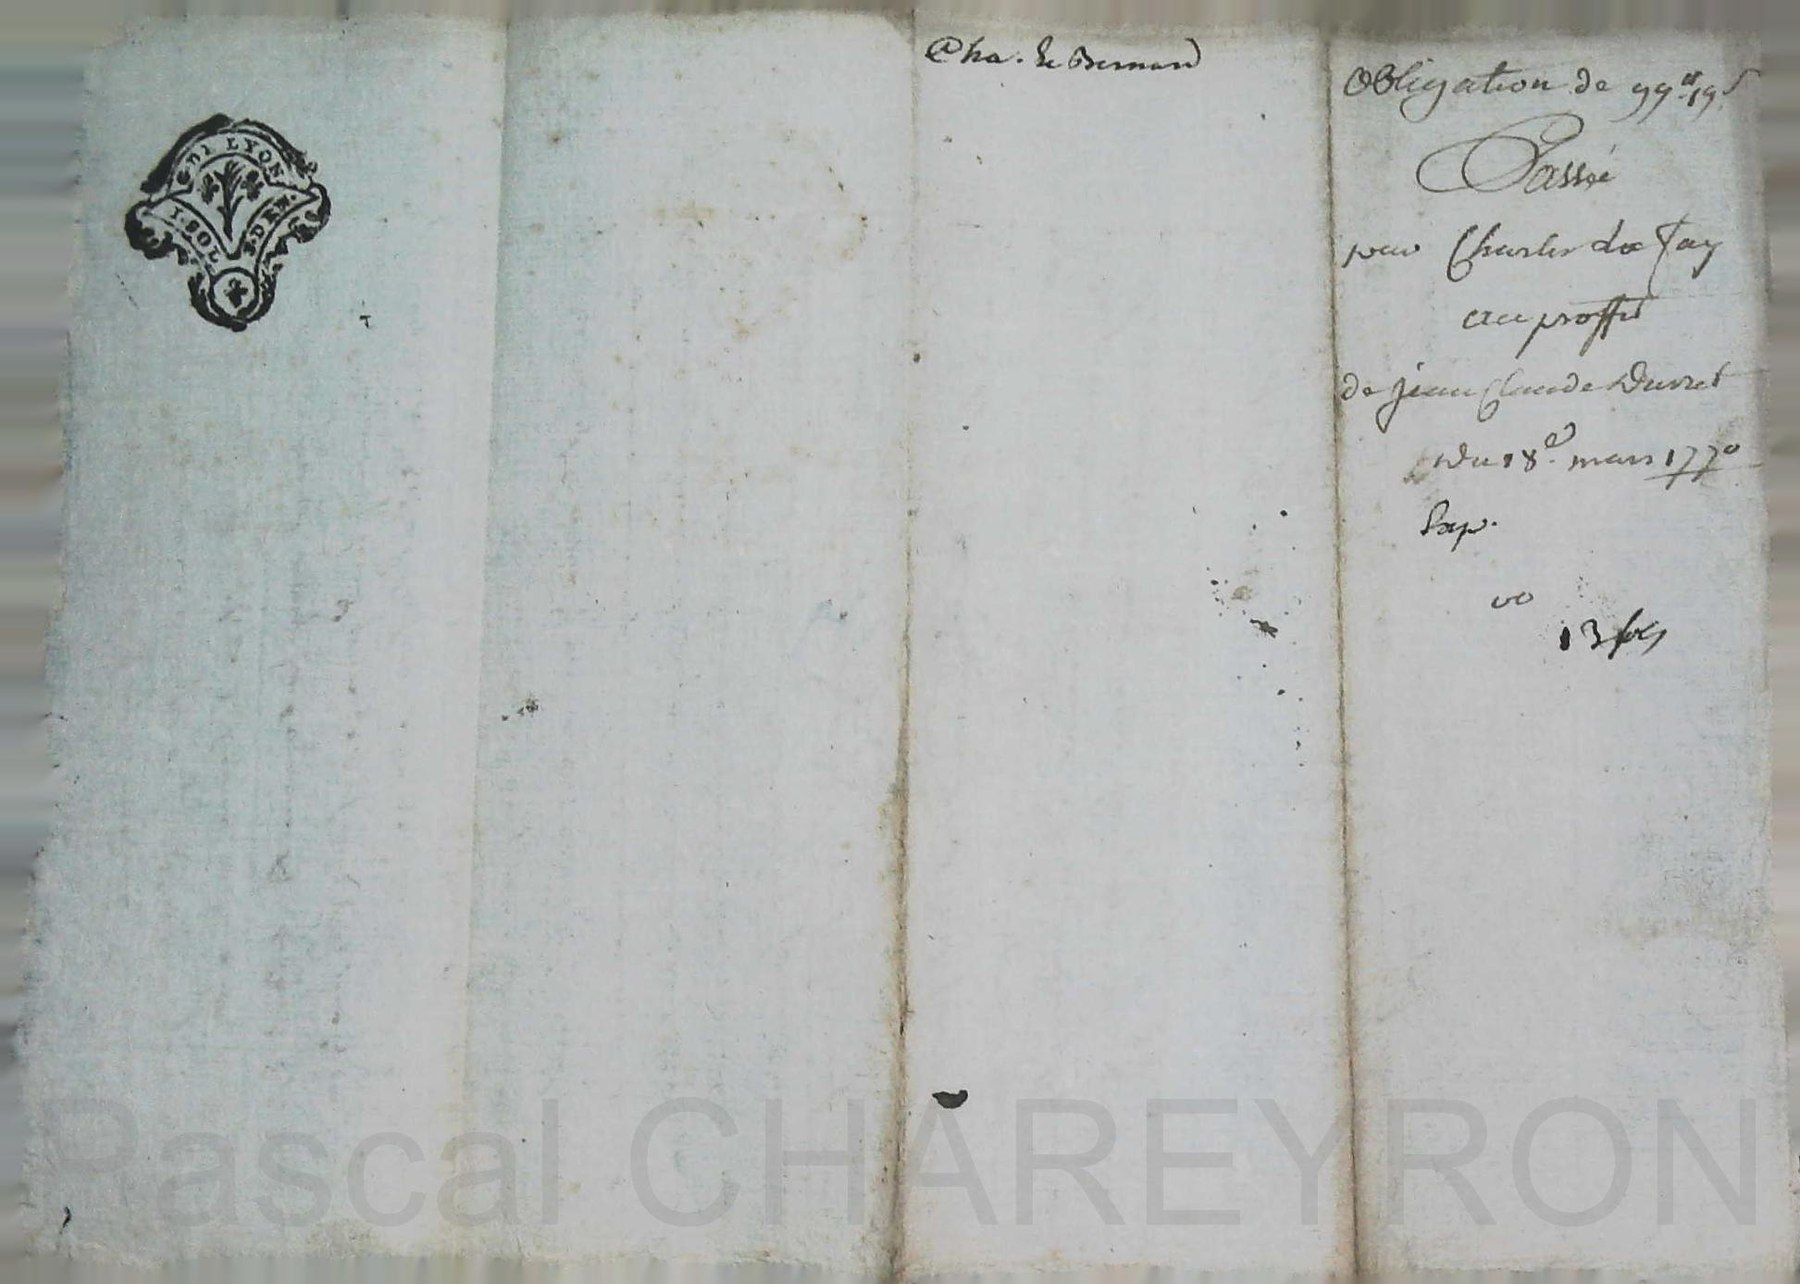 G. DE LYON.
1. SOL 8. DEN.
Cha. le Bernard
Obligation de 99# 19s
Passée
par Charles du Fay
au proffit
de jean Claude Durret
Du 18e. mars 1770
Exp.
vo
13 sols
Pascal CHAREYRON